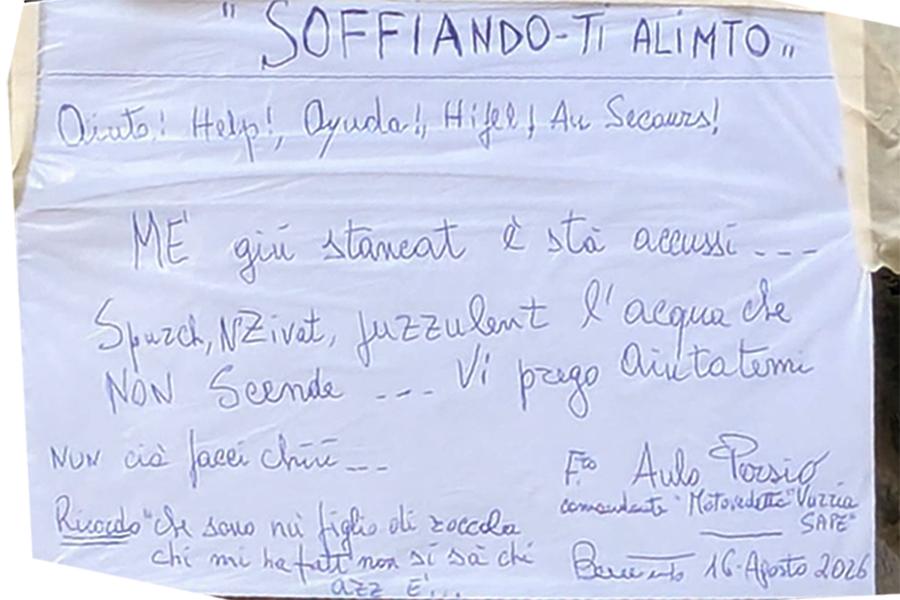 " SOFFIANDO-Ti ALiMTO „
Aiuto! Help!, Ayuda!, Hifel! Au Secours!
ME' giú stancat è stà accussì ---
Spurch, NZivat, fuzzulent l'acqua che
NON Scende --- Vi prego Aiutatemi
NUN cià facci chiù ---
F.to Aulo Persio
comandante "Motovedetta" Vurria
SAPE"
Ricordo "che sono nu figlio di zoccola
chi mi ha fatt non si sà chi
azz E'...
Benevento 16-Agosto 2026